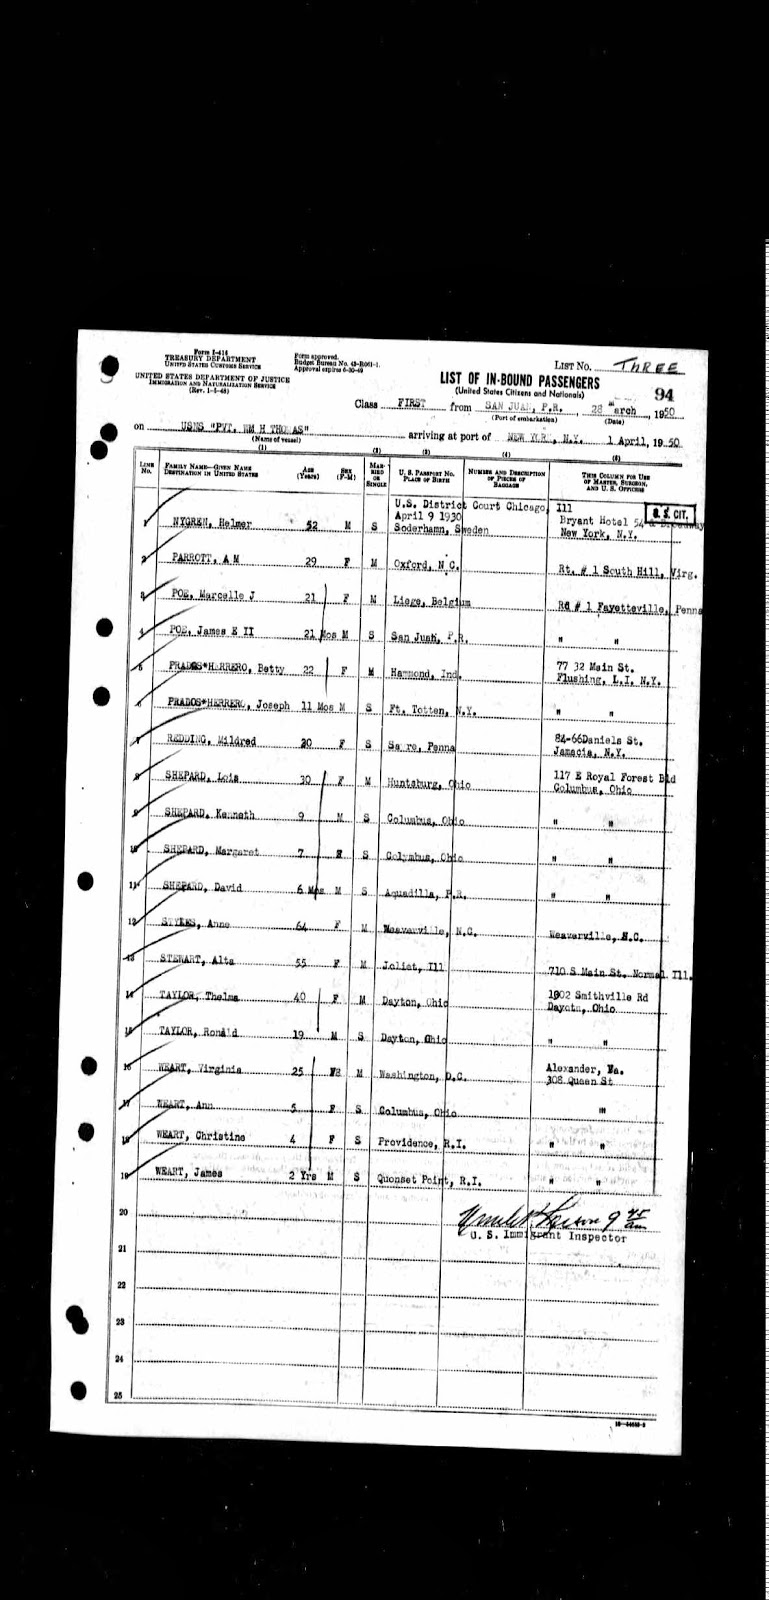 Form I-418
TREASURY DEPARTMENT
UNITED STATES CUSTOMS SERVICE
UNITED STATES DEPARTMENT OF JUSTICE
IMMIGRATION AND NATURALIZATION SERVICE
(Rev. 1-5-48)
Form approved.
Budget Bureau No. 43-R061-1.
Approval expires 6-30-49
LIST NO. THREE
LIST OF IN-BOUND PASSENGERS
(United States Citizens and Nationals)
94
Class FIRST from SAN JUAN, P.R., 28 March, 1950
(Port of embarkation) (Date)
on USNS "PVT. WM H THOMAS" arriving at port of NEW YORK, N.Y. 1 April, 1950
(Name of vessel)
(1) (2) (3) (4) (5)
LINE NO. FAMILY NAME—GIVEN NAME DESTINATION IN UNITED STATES AGE (Years) SEX (F-M) MARRIED OR SINGLE U. S. PASSPORT NO. PLACE OF BIRTH NUMBER AND DESCRIPTION OF PIECES OF BAGGAGE THIS COLUMN FOR USE OF MASTER, SURGEON, AND U. S. OFFICERS
U.S. District Court Chicago, Ill
U. S. CIT.
April 9 1930 Bryant Hotel 54 & Broadway
1 NYGREN, Helmer 52 M S Soderhamn, Sweden New York, N.Y.
2 PARROTT, A M 29 F M Oxford, N.C. Rt. # 1 South Hill, Virg.
3 POE, Marcelle J 21 F M Liege, Belgium Rd # 1 Fayetteville, Penna
4 POE, James E II 21 Mos M S San Juan, P.R. " "
5 PRADOS*HERRERO, Betty 22 F M Hammond, Ind. 77 32 Main St.
Flushing, L.I. N.Y.
PRADOS*HERRERO, Joseph 11 Mos M S Ft. Totten, N.Y. " "
7 REDDING, Mildred 20 F S Sayre, Penna 84-66Daniels St.
Jamacia, N.Y.
8 SHEPARD, Lois 30 F M Huntsburg, Ohio 117 E Royal Forest Bld
Columbus, Ohio
9 SHEPARD, Kenneth 9 M S Columbus, Ohio " "
10 SHEPARD, Margaret 7 S Columbus, Ohio " "
11 SHEPARD, David 6 Mos M S Aquadilla, P.R. " "
12 STYLES, Anne 64 F M Weaverville, N.C. Weaverville, N.C.
13 STEWART, Alta 55 F M Joliet, Ill 710 S Main St. Normal Ill.
14 TAYLOR, Thelma 40 F M Dayton, Ohio 1902 Smithville Rd
Dayotn, Ohio
15 TAYLOR, Ronald 19 M S Dayton, Ohio " "
16 WEART, Virginia 25 M Washington, D.C. Alexander, Va.
308 Queen St
17 WEART, Ann 5 F S Columbus, Ohio "
18 WEART, Christine 4 F S Providence, R.I. " "
19 WEART, James 2 Yrs M S Quonset Point, R.I. " "
20
9 45 am
U. S. Immigrant Inspector
21
22
23
24
25